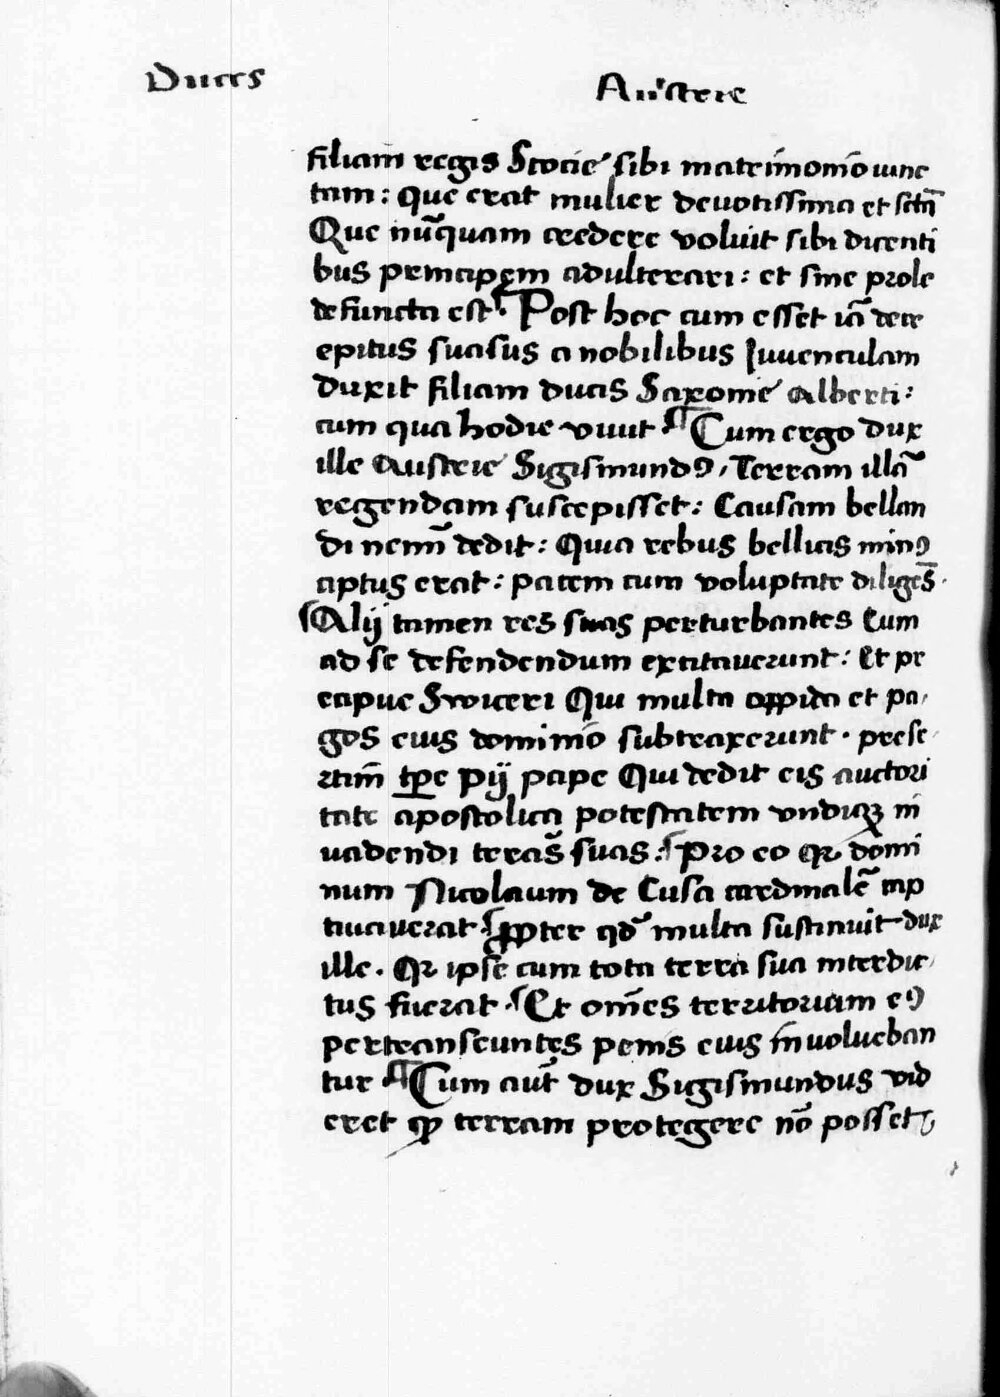 Duces Austrie
filiam̄ regis Scocie sibi matrimonio iunc
tam: Que erat mulier deuotissima et sctā
Que nūquam credere voluit sibi dicenti
bus principem adulterari: et sine prole
defuncta est. Post hoc cum esset iā decr
epitus suasus a nobilibus Iuuenculam
duxit filiam ducis Saxonie Alberti:
cum qua hodie viuit ¶ Cum ergo dux
ille Austrie Sigismundꝰ, Terram illā
regendam suscepisset: Causam bellan
di nemī dedit: Quia rebus bellicis minꝰ
aptus erat: pacem cum voluptate diligēs.
¶ Alij tamen res suas perturbantes Eum
ad se defendendum excitauerunt: Et pr
ecipue Swiceri Qui multa oppida et pa,
gos eius dominio subtraxerunt. prese
rtim̄ tꝑe pij pape Qui dedit eis auctori
tate apostolica potestatem vndiqꝫ in
uadendi teras̄ suas: ¶ Pro eo ꝙ domi
num Nicolaum de Cusa cardinalē cap
tiuauerat ¶ Propter qd̄ multa sustinuit dux
ille. ꝙ ipse cum tota terra sua interdic,
tus fuerat. ¶ Et om̄es territorium eꝰ
pertranseuntes penis eius inuolueban
tur ¶ Cum aūt dux Sigismundus vid
eret ꝙ terram protegere nō posset